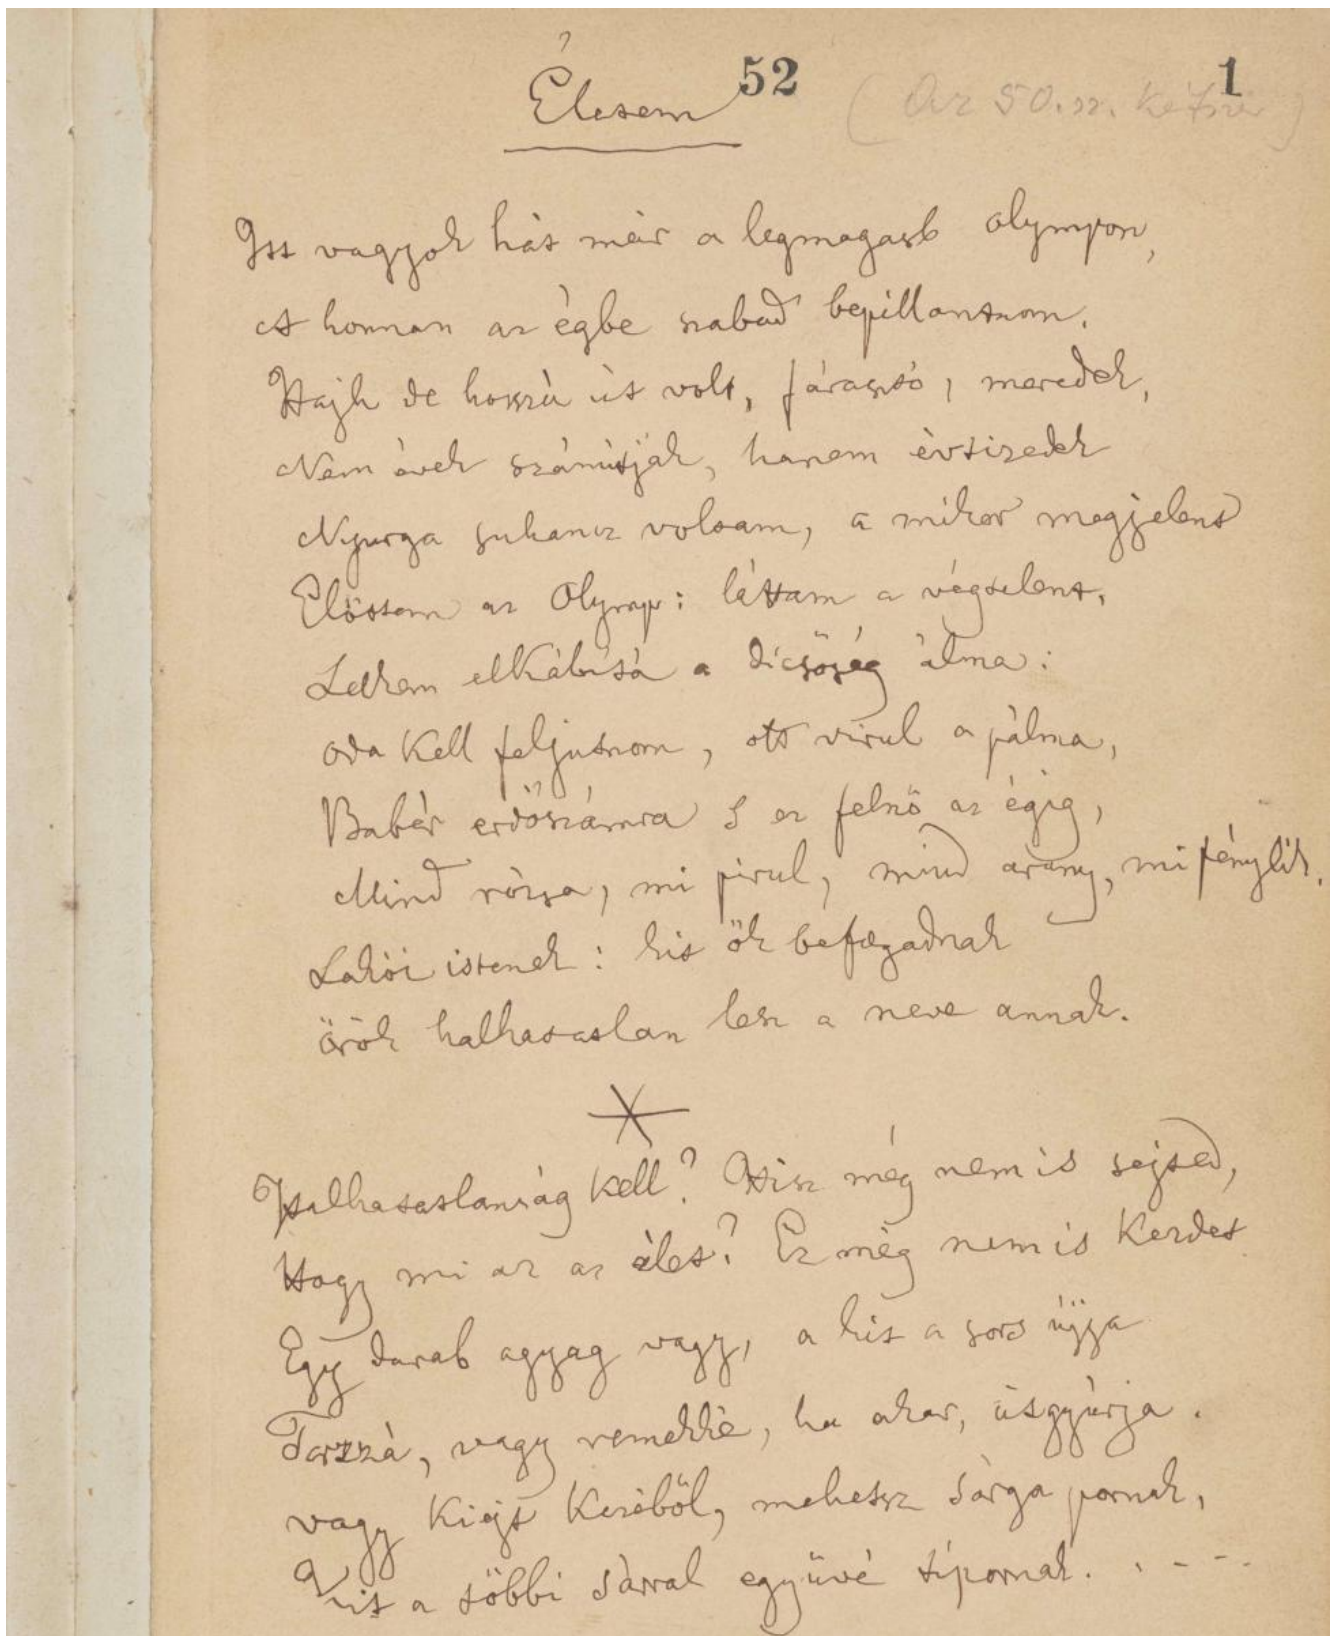 Életem
52
1
(Az 50. sz. kétszer)
Itt vagyok hát már a legmagasb olympon,
A honnan az égbe szabad bepillantnom.
Hajh de hosszú út volt, fárasztó, meredek,
Nem évek számítják, hanem évtizedek
Nyurga suhancz voltam, a mikor megjelent
Előttem az Olymp: láttam a végtelent,
Lelkem elkábítá a dicsőség álma:
oda kell feljutnom, ott virul a pálma,
Babér erdőszámra s ez felnő az égig,
Mind rózsa, mi pirul, mind arany, mi fénylik.
Lakói istenek: kit ők befogadnak
örök halhatatlan lesz a neve annak.
*
Halhatatlanság kell? Hisz még nem is sejted,
Hogy mi az az élet? Ez még nem is kezdet
Egy darab agyag vagy, a kit a sors újja
Torzzá, vagy remekké, ha akar, átgyúrja.
vagy kiejt kezéből, mehetsz sárga pornak,
Kit a többi sárral együvé tipornak. . - - -